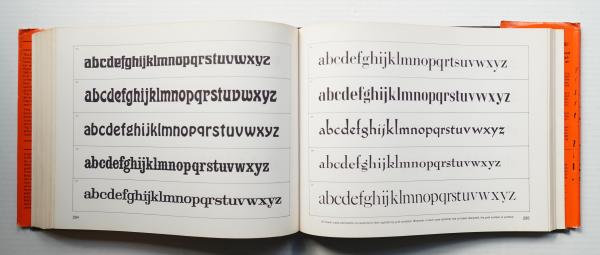 abcdefghijklmnopqrstuvwxyz
abcdefghijklmnopqrstuvwxyz
abcdefghijklmnopqrstuvwxyz
abcdefghijklmnopqrstuvwxyz
abcdefghijklmnopqrstuvwxyz
abcdefghijklmnopqrtsuvwxyz
abcdefghijklmnopqrstuvwxyz
abcdefghijklmnopqrstuvwxyz
abcdefghijklmnopqrstuvwxyz
abcdefghijklmnopqrstuvwxyz